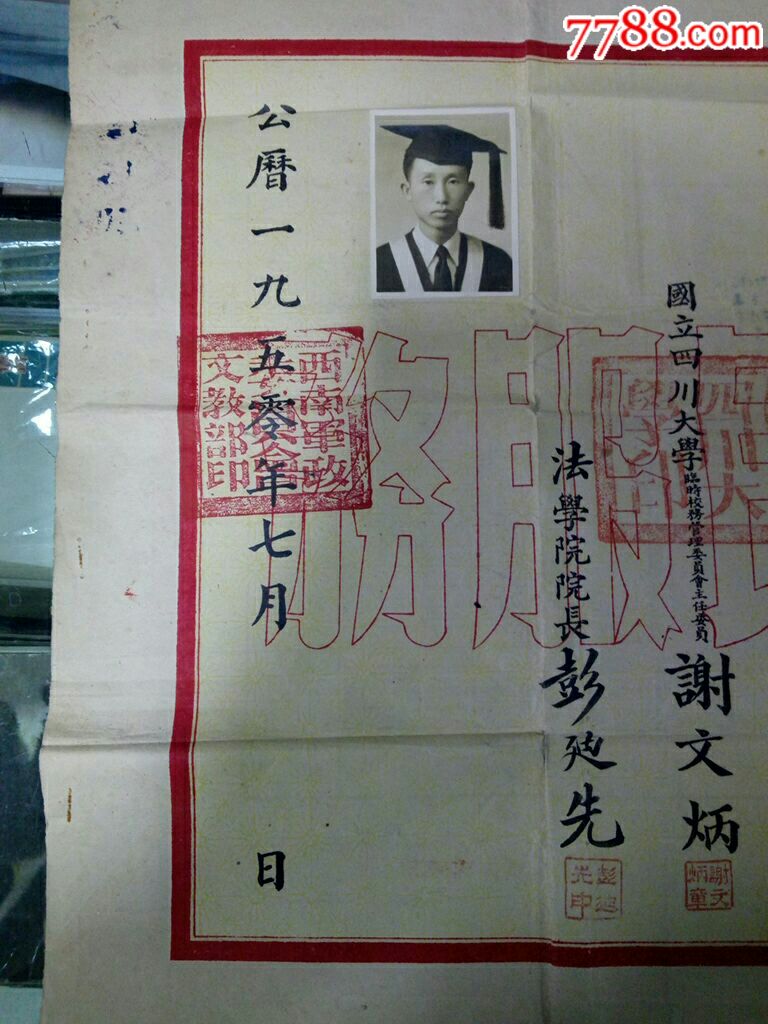 7788.com
國立四川大學臨時校務管理委員會主任委員 謝文炳
謝文炳章
法學院院長 彭廸先
彭廸先印
公曆一九五零年七月 日
西南軍政委員會文教部印
服務